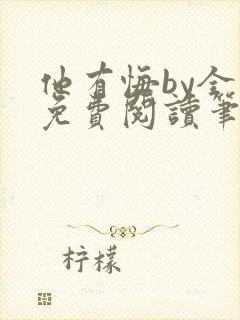 他有悔by金
免費閱讀筆
柠檬